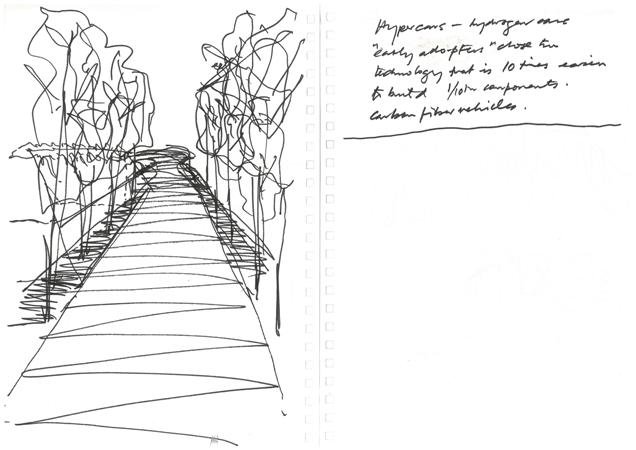 Hypercars – hydrogen cars
"early adopters" chose the
technology that is 10 times easier
to build 1/10th components.
carbon fiber vehicles.